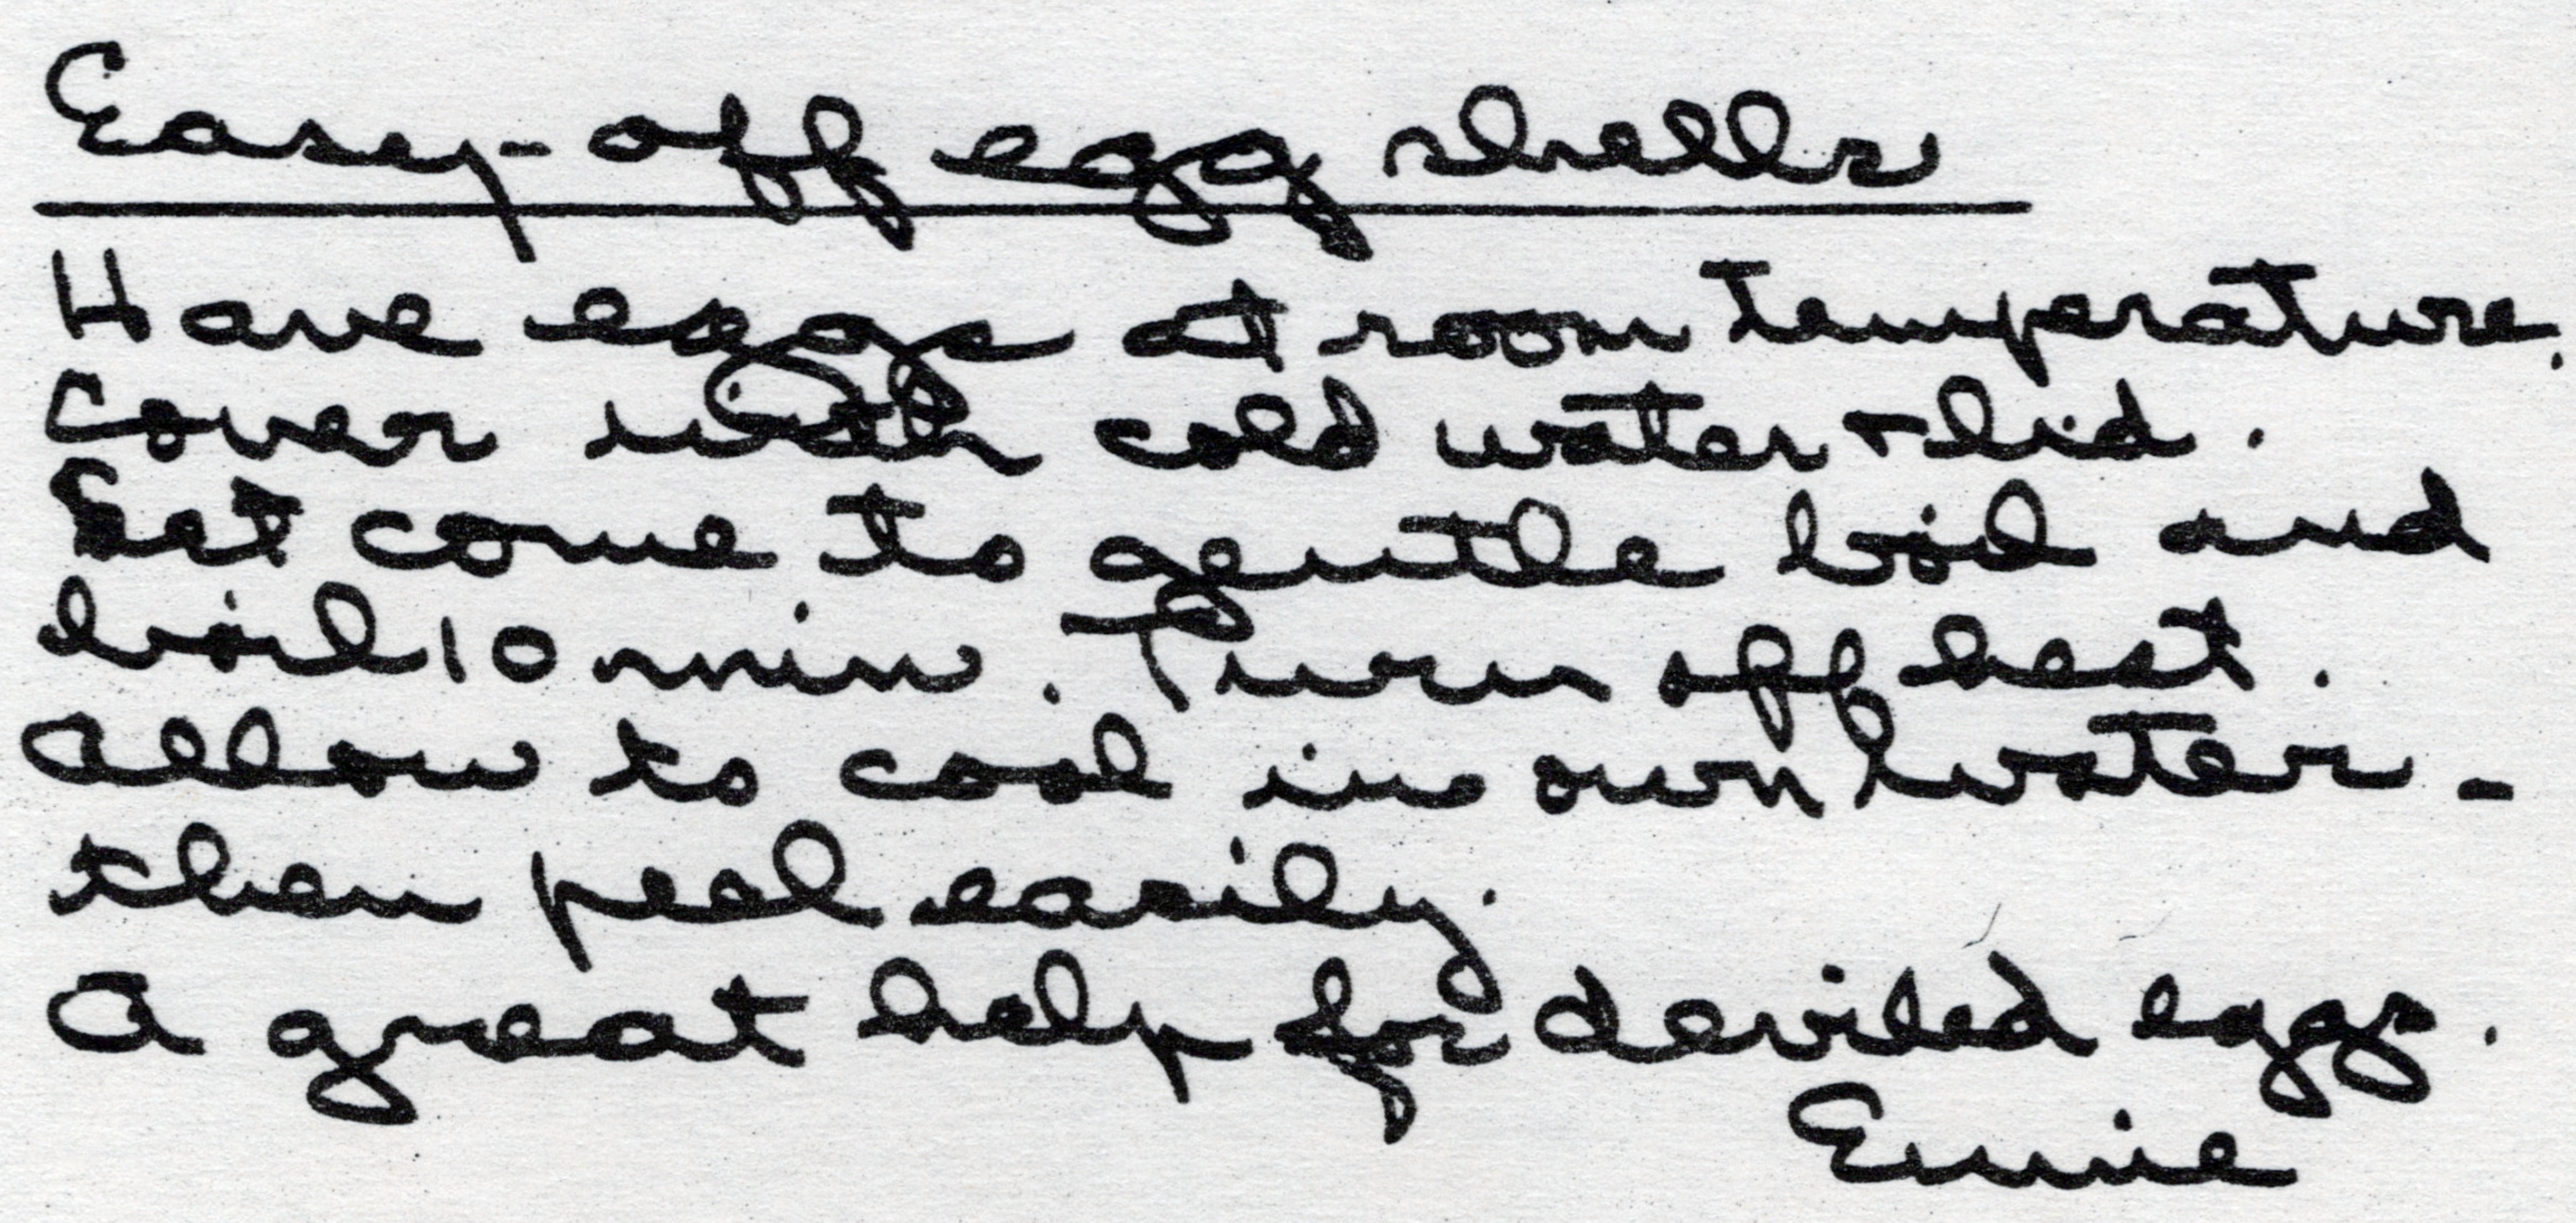 Easy-off egg shells
Have eggs at room temperature.
Cover with cold water + lid.
Let come to gentle boil and
boil 10 min. Turn off heat.
Allow to cool in own water -
then peel easily.
A great help for deviled eggs.